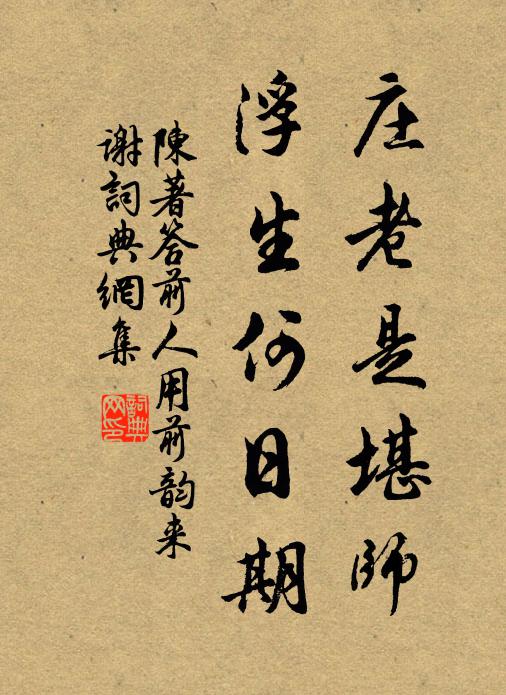 庄老是堪師
浮生何日期
陳著答前人用前韵来
谢詞典網集
詞典网印